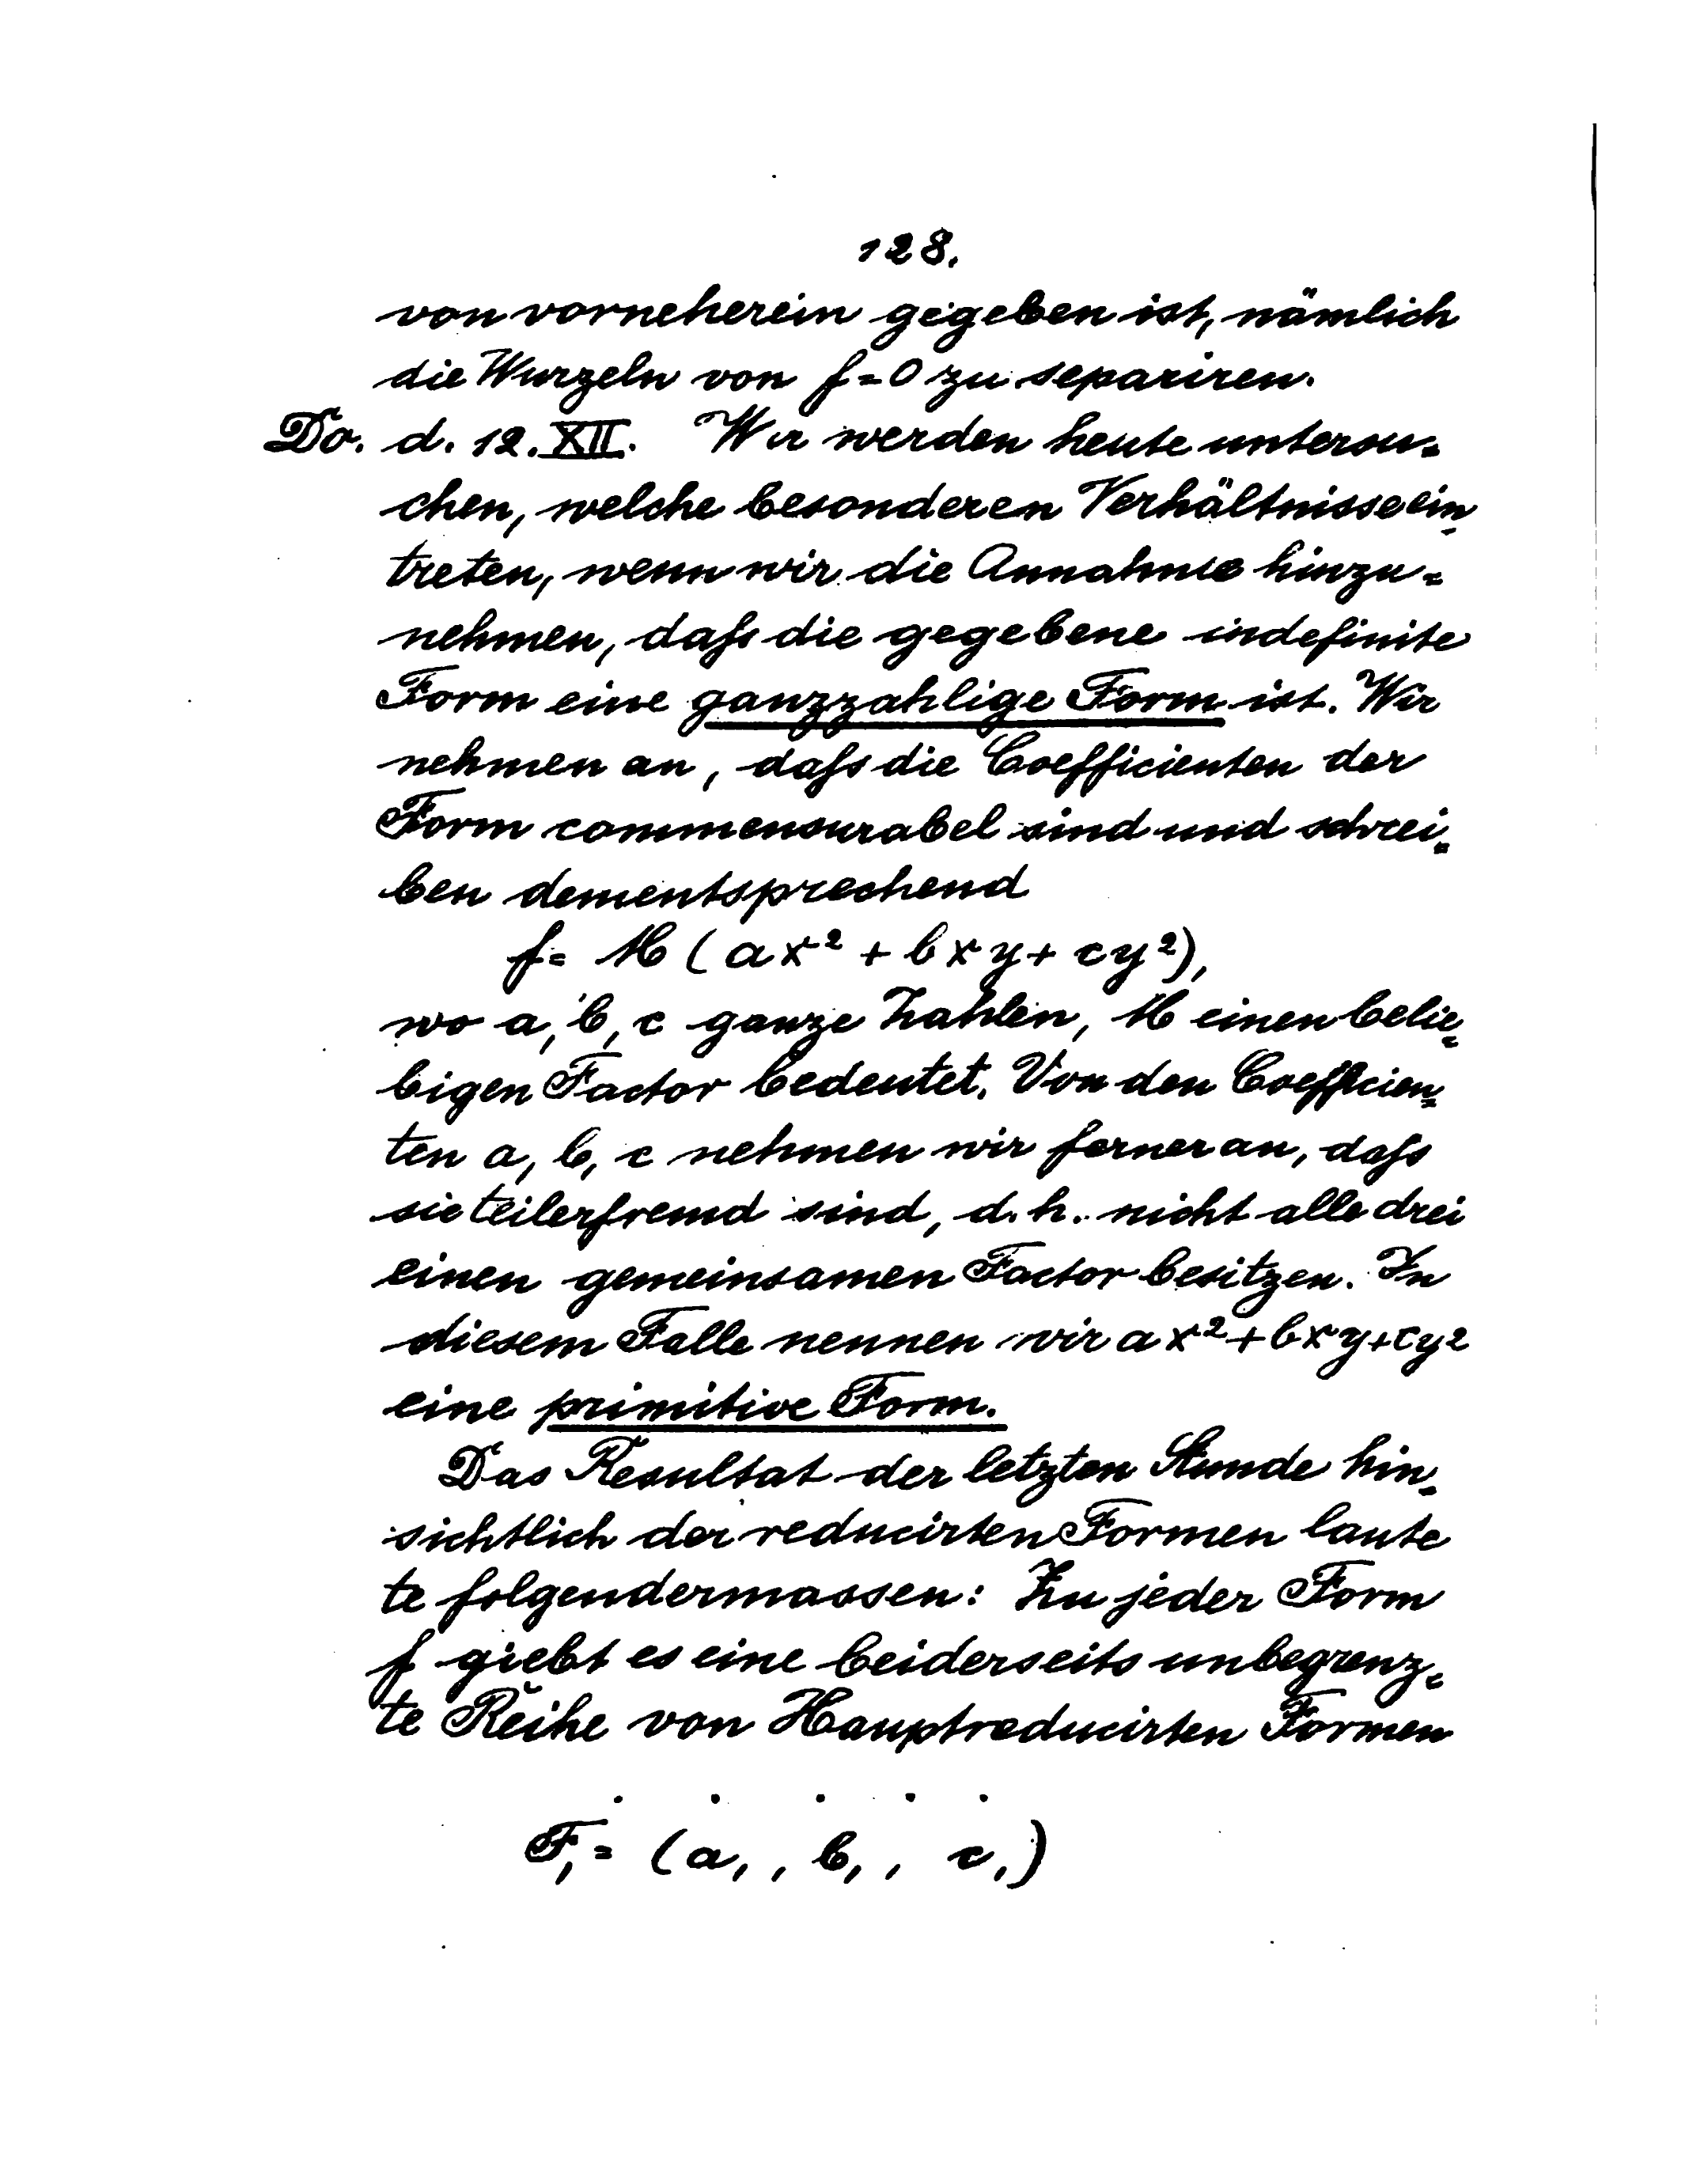 128.
von vorneherein gegeben ist, nämlich
die Wurzeln von f=0 zu separiren.
Do. d. 12. XII. Wir werden heute untersu=
chen, welche besonderen Verhältnisse ein=
treten, wenn wir die Annahme hinzu=
nehmen, daſs die gegebene indefinite
Form eine ganzzahlige Form ist. Wir
nehmen an, daſs die Coefficienten der
Form commensurabel sind und schrei=
ben dementsprechend
f = M (ax² + bxy + cy²),
wo a, b, c ganze Zahlen, M einen belie=
bigen Factor bedeutet. Von den Coefficien=
ten a, b, c nehmen wir ferner an, daſs
sie teilerfremd sind, d. h. nicht alle drei
einen gemeinsamen Factor besitzen. In
diesem Falle nennen wir ax²+bxy+cy²
eine primitive Form.
Das Resultat der letzten Stunde hin=
sichtlich der reducirten Formen laute
te folgendermassen: Zu jeder Form
f giebt es eine beiderseits unbegrenz=
te Reihe von Hauptreducirten Formen
. . . . .
F₁ = (a₁, b₁, c₁)